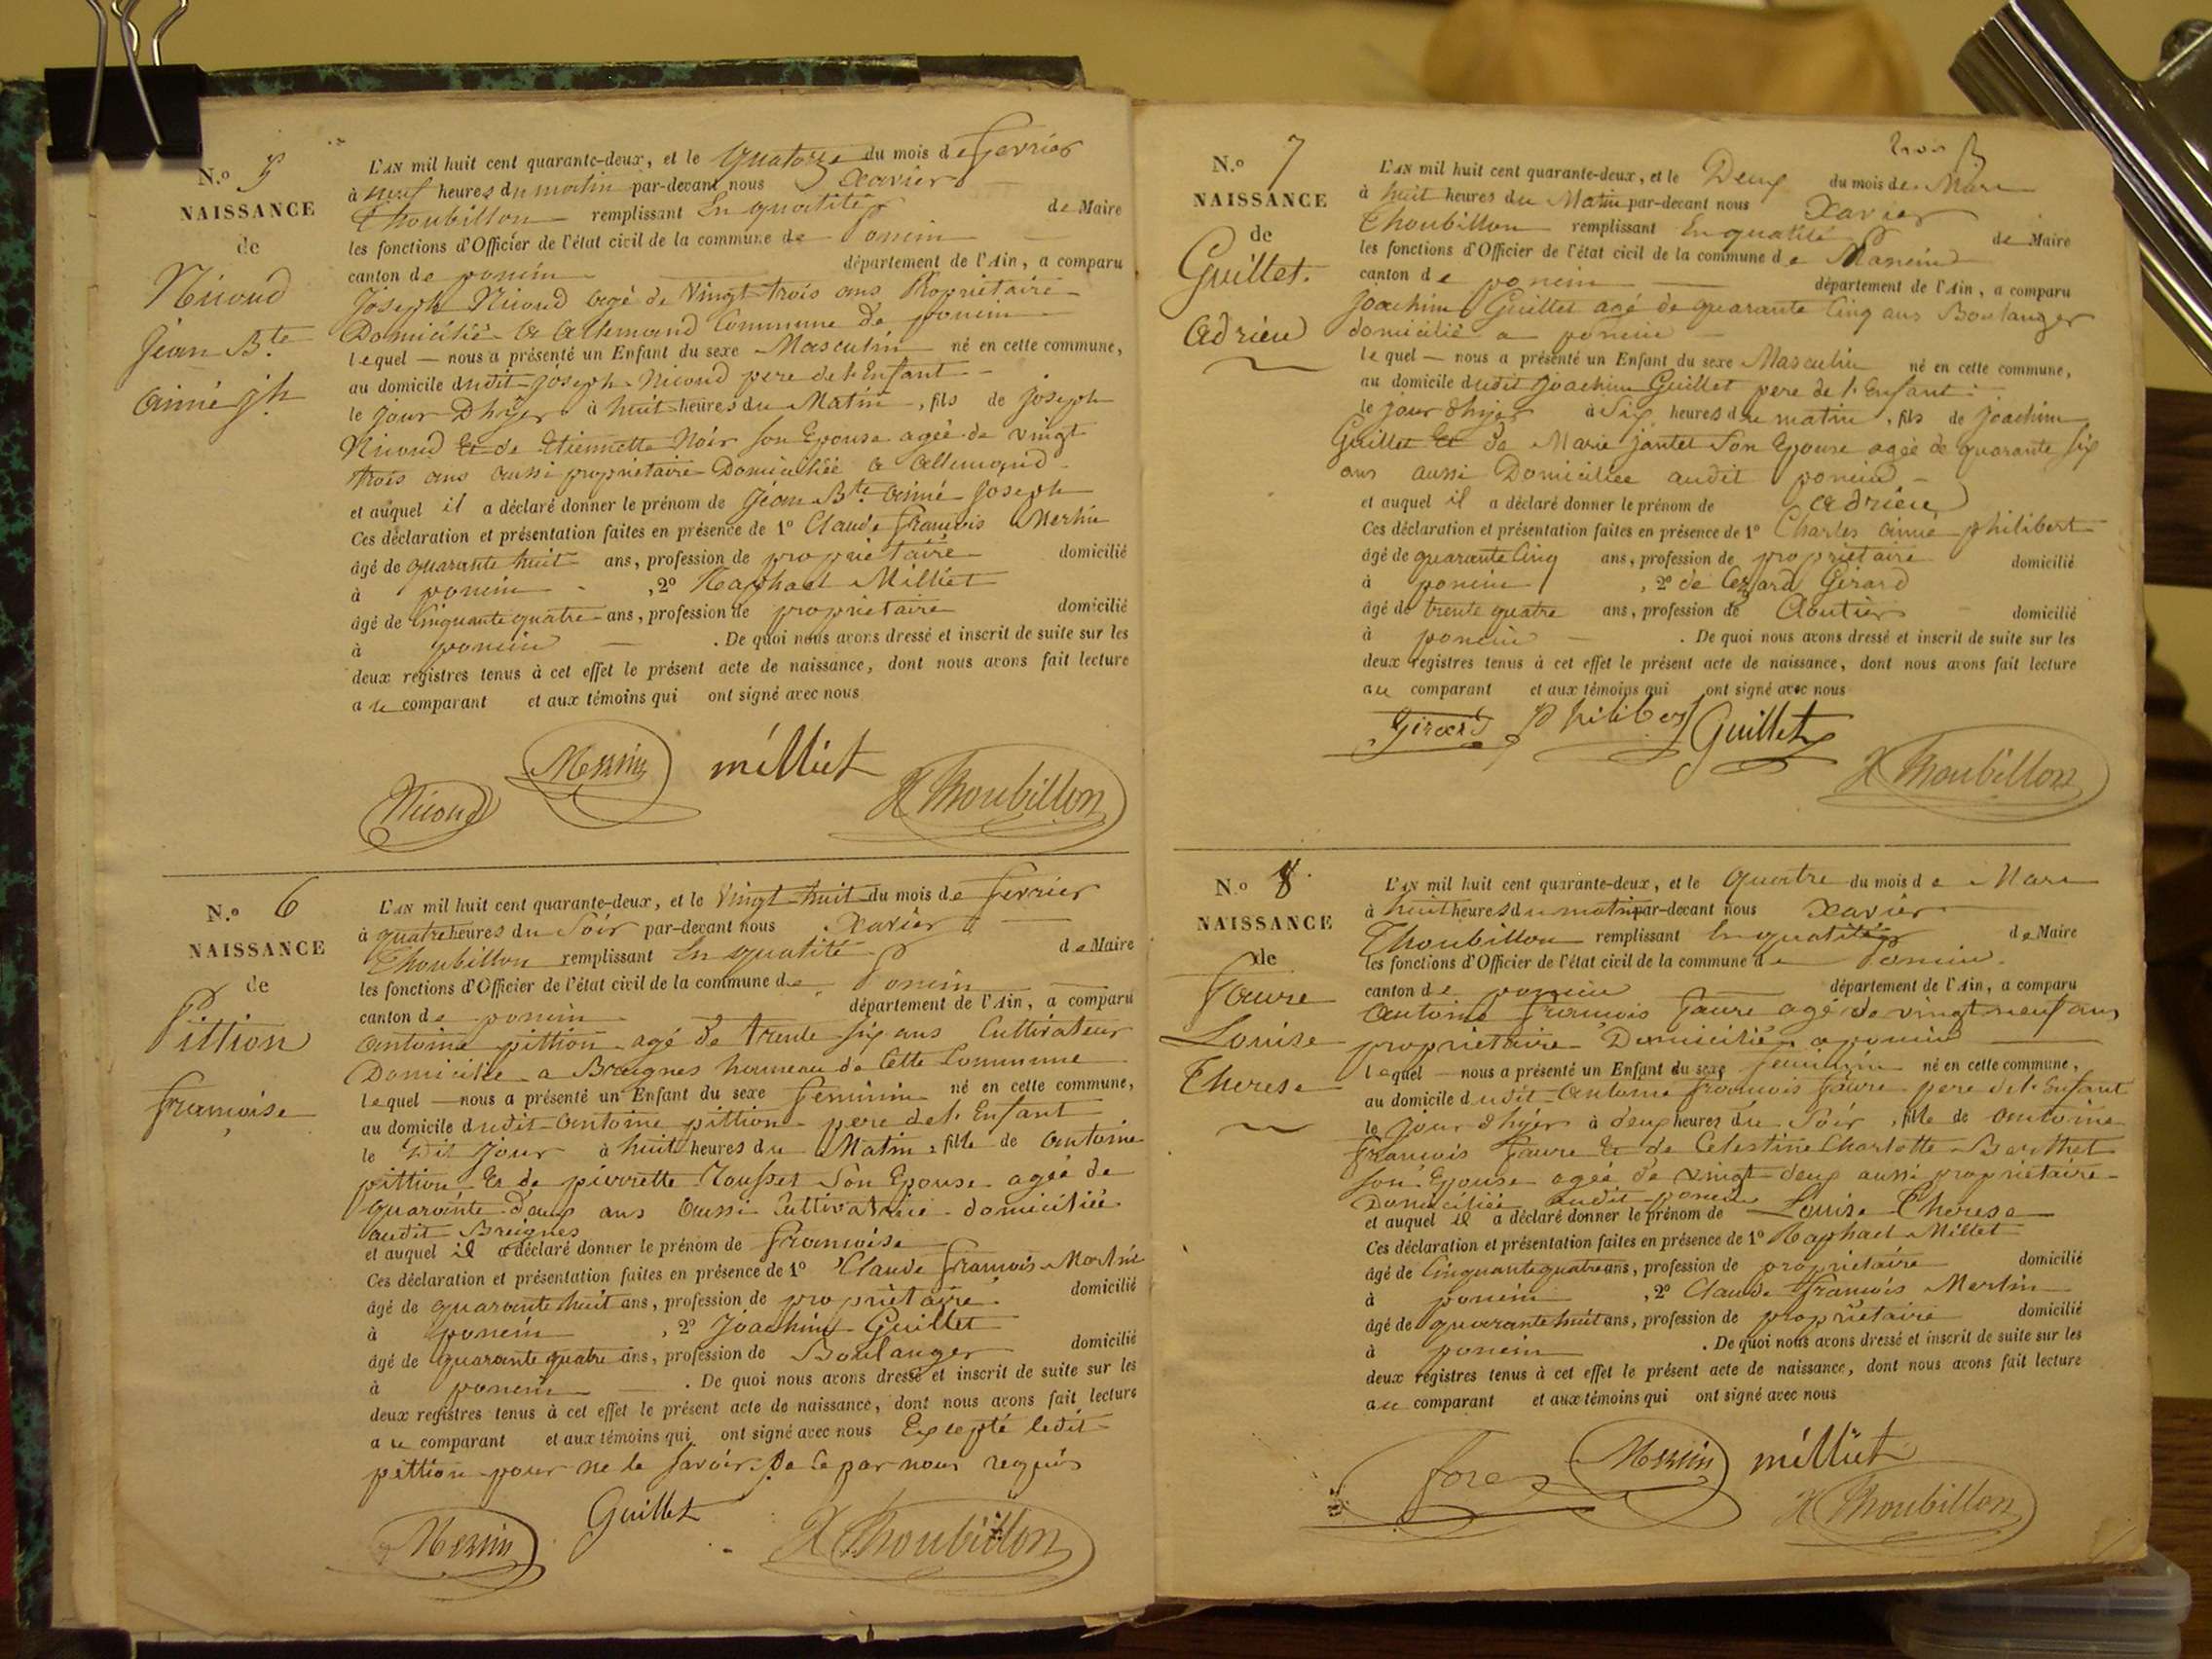 N.o 5
NAISSANCE
de
Nicoud
Jean Bte
aimé jh
L'AN mil huit cent quarante-deux, et le quatorze du mois de fevrier
à neuf heures du matin par-devant nous Xavier
Thoubillon remplissant En qualité de Maire
les fonctions d'Officier de l'état civil de la commune de Poncin
canton de poncin département de l'Ain, a comparu
Joseph Nicoud agé de Vingt trois ans Propriétaire
Domicilié a allemand Commune de poncin
lequel nous a présenté un Enfant du sexe Masculin né en cette commune,
au domicile dudit joseph Nicoud pere de l'Enfant
le jour Dhyer à huit heures du Matin, fils de joseph
Nicoud Et de Etiennette Noir son Epouse ageé de vingt
trois ans aussi propriétaire Domiciliée a allemand
et auquel il a déclaré donner le prénom de jean Bte aimé joseph
Ces déclaration et présentation faites en présence de 1º Claude françois Merlin
âgé de quarante huit ans, profession de propriétaire domicilié
à poncin , 2º Raphael Milliet
âgé de Cinquante quatre ans, profession de propriétaire domicilié
à poncin . De quoi nous avons dressé et inscrit de suite sur les
deux registres tenus à cet effet le présent acte de naissance, dont nous avons fait lecture
au comparant et aux témoins qui ont signé avec nous
Merlin milliet
Nicoud X Thoubillon
N.o 6
NAISSANCE
de
Pittion
françoise
L'AN mil huit cent quarante-deux, et le Vingt huit du mois de fevrier
à quatre heures du Soir par-devant nous Xavier
Thoubillon remplissant En qualité de Maire
les fonctions d'Officier de l'état civil de la commune de Poncin
canton de poncin département de l'Ain, a comparu
antoine pittion agé de trente six ans Cultivateur
Domicilié a Breignes hameau de Cette Commune
lequel nous a présenté un Enfant du sexe féminin né en cette commune,
au domicile dudit antoine pittion pere de l'Enfant
le Dit jour à huit heures du Matin, fille de antoine
pittion Et de pierrette Rousset Son Epouse ageé de
quarante deux ans aussi Cultivatrice domiciliée
audit Breignes
et auquel il a déclaré donner le prénom de françoise
Ces déclaration et présentation faites en présence de 1º Claude françois Merlin
âgé de quarante huit ans, profession de propriétaire domicilié
à poncin , 2º Joachim Guillet
âgé de quarante quatre ans, profession de Boulanger domicilié
à poncin . De quoi nous avons dressé et inscrit de suite sur les
deux registres tenus à cet effet le présent acte de naissance, dont nous avons fait lecture
au comparant et aux témoins qui ont signé avec nous Excepté ledit
pittion pour ne le savoir De ce par nous requis
Merlin Guillet X Thoubillon
trois
N.o 7
NAISSANCE
de
Guillet
adrien
L'AN mil huit cent quarante-deux, et le Deux du mois de Mars
à huit heures du Matin par-devant nous Xavier
Thoubillon remplissant En qualité de Maire
les fonctions d'Officier de l'état civil de la commune de Poncin
canton de poncin département de l'Ain, a comparu
joachim Guillet agé de quarante Cinq ans Boulanger
domicilié a poncin
lequel nous a présenté un Enfant du sexe Masculin né en cette commune,
au domicile dudit joachim Guillet pere de l'Enfant
le jour dhyer à Six heures du matin, fils de joachim
Guillet Et de Marie jantet Son Epouse ageé de quarante six
ans aussi Domiciliée audit poncin
et auquel il a déclaré donner le prénom de adrien
Ces déclaration et présentation faites en présence de 1º Charles aimé philibert
âgé de quarante Cinq ans, profession de propriétaire domicilié
à poncin , 2º Gérard
âgé de trente quatre ans, profession de Cloutier domicilié
à poncin . De quoi nous avons dressé et inscrit de suite sur les
deux registres tenus à cet effet le présent acte de naissance, dont nous avons fait lecture
au comparant et aux témoins qui ont signé avec nous
Girard Philibert Guillet
X Thoubillon
N.o 8
NAISSANCE
de
faure
Louise
Therese
L'AN mil huit cent quarante-deux, et le quatre du mois de Mars
à huit heures du matin par-devant nous Xavier
Thoubillon remplissant En qualité de Maire
les fonctions d'Officier de l'état civil de la commune de Poncin
canton de poncin département de l'Ain, a comparu
antoine françois faure agé de vingt neuf ans
propriétaire Domicilié a poncin
lequel nous a présenté un Enfant du sexe féminin né en cette commune,
au domicile dudit antoine françois faure pere de l'Enfant
le jour dhyer à deux heures du Soir, fille de antoine
françois faure Et de Celestine Charlotte Berthet
son Epouse ageé de vingt deux aussi propriétaire
Domiciliée audit poncin
et auquel il a déclaré donner le prénom de Louise Therese
Ces déclaration et présentation faites en présence de 1º Raphael Milliet
âgé de Cinquante quatre ans, profession de propriétaire domicilié
à poncin , 2º Claude françois Merlin
âgé de quarante huit ans, profession de propriétaire domicilié
à poncin . De quoi nous avons dressé et inscrit de suite sur les
deux registres tenus à cet effet le présent acte de naissance, dont nous avons fait lecture
au comparant et aux témoins qui ont signé avec nous
Merlin milliet
X Thoubillon